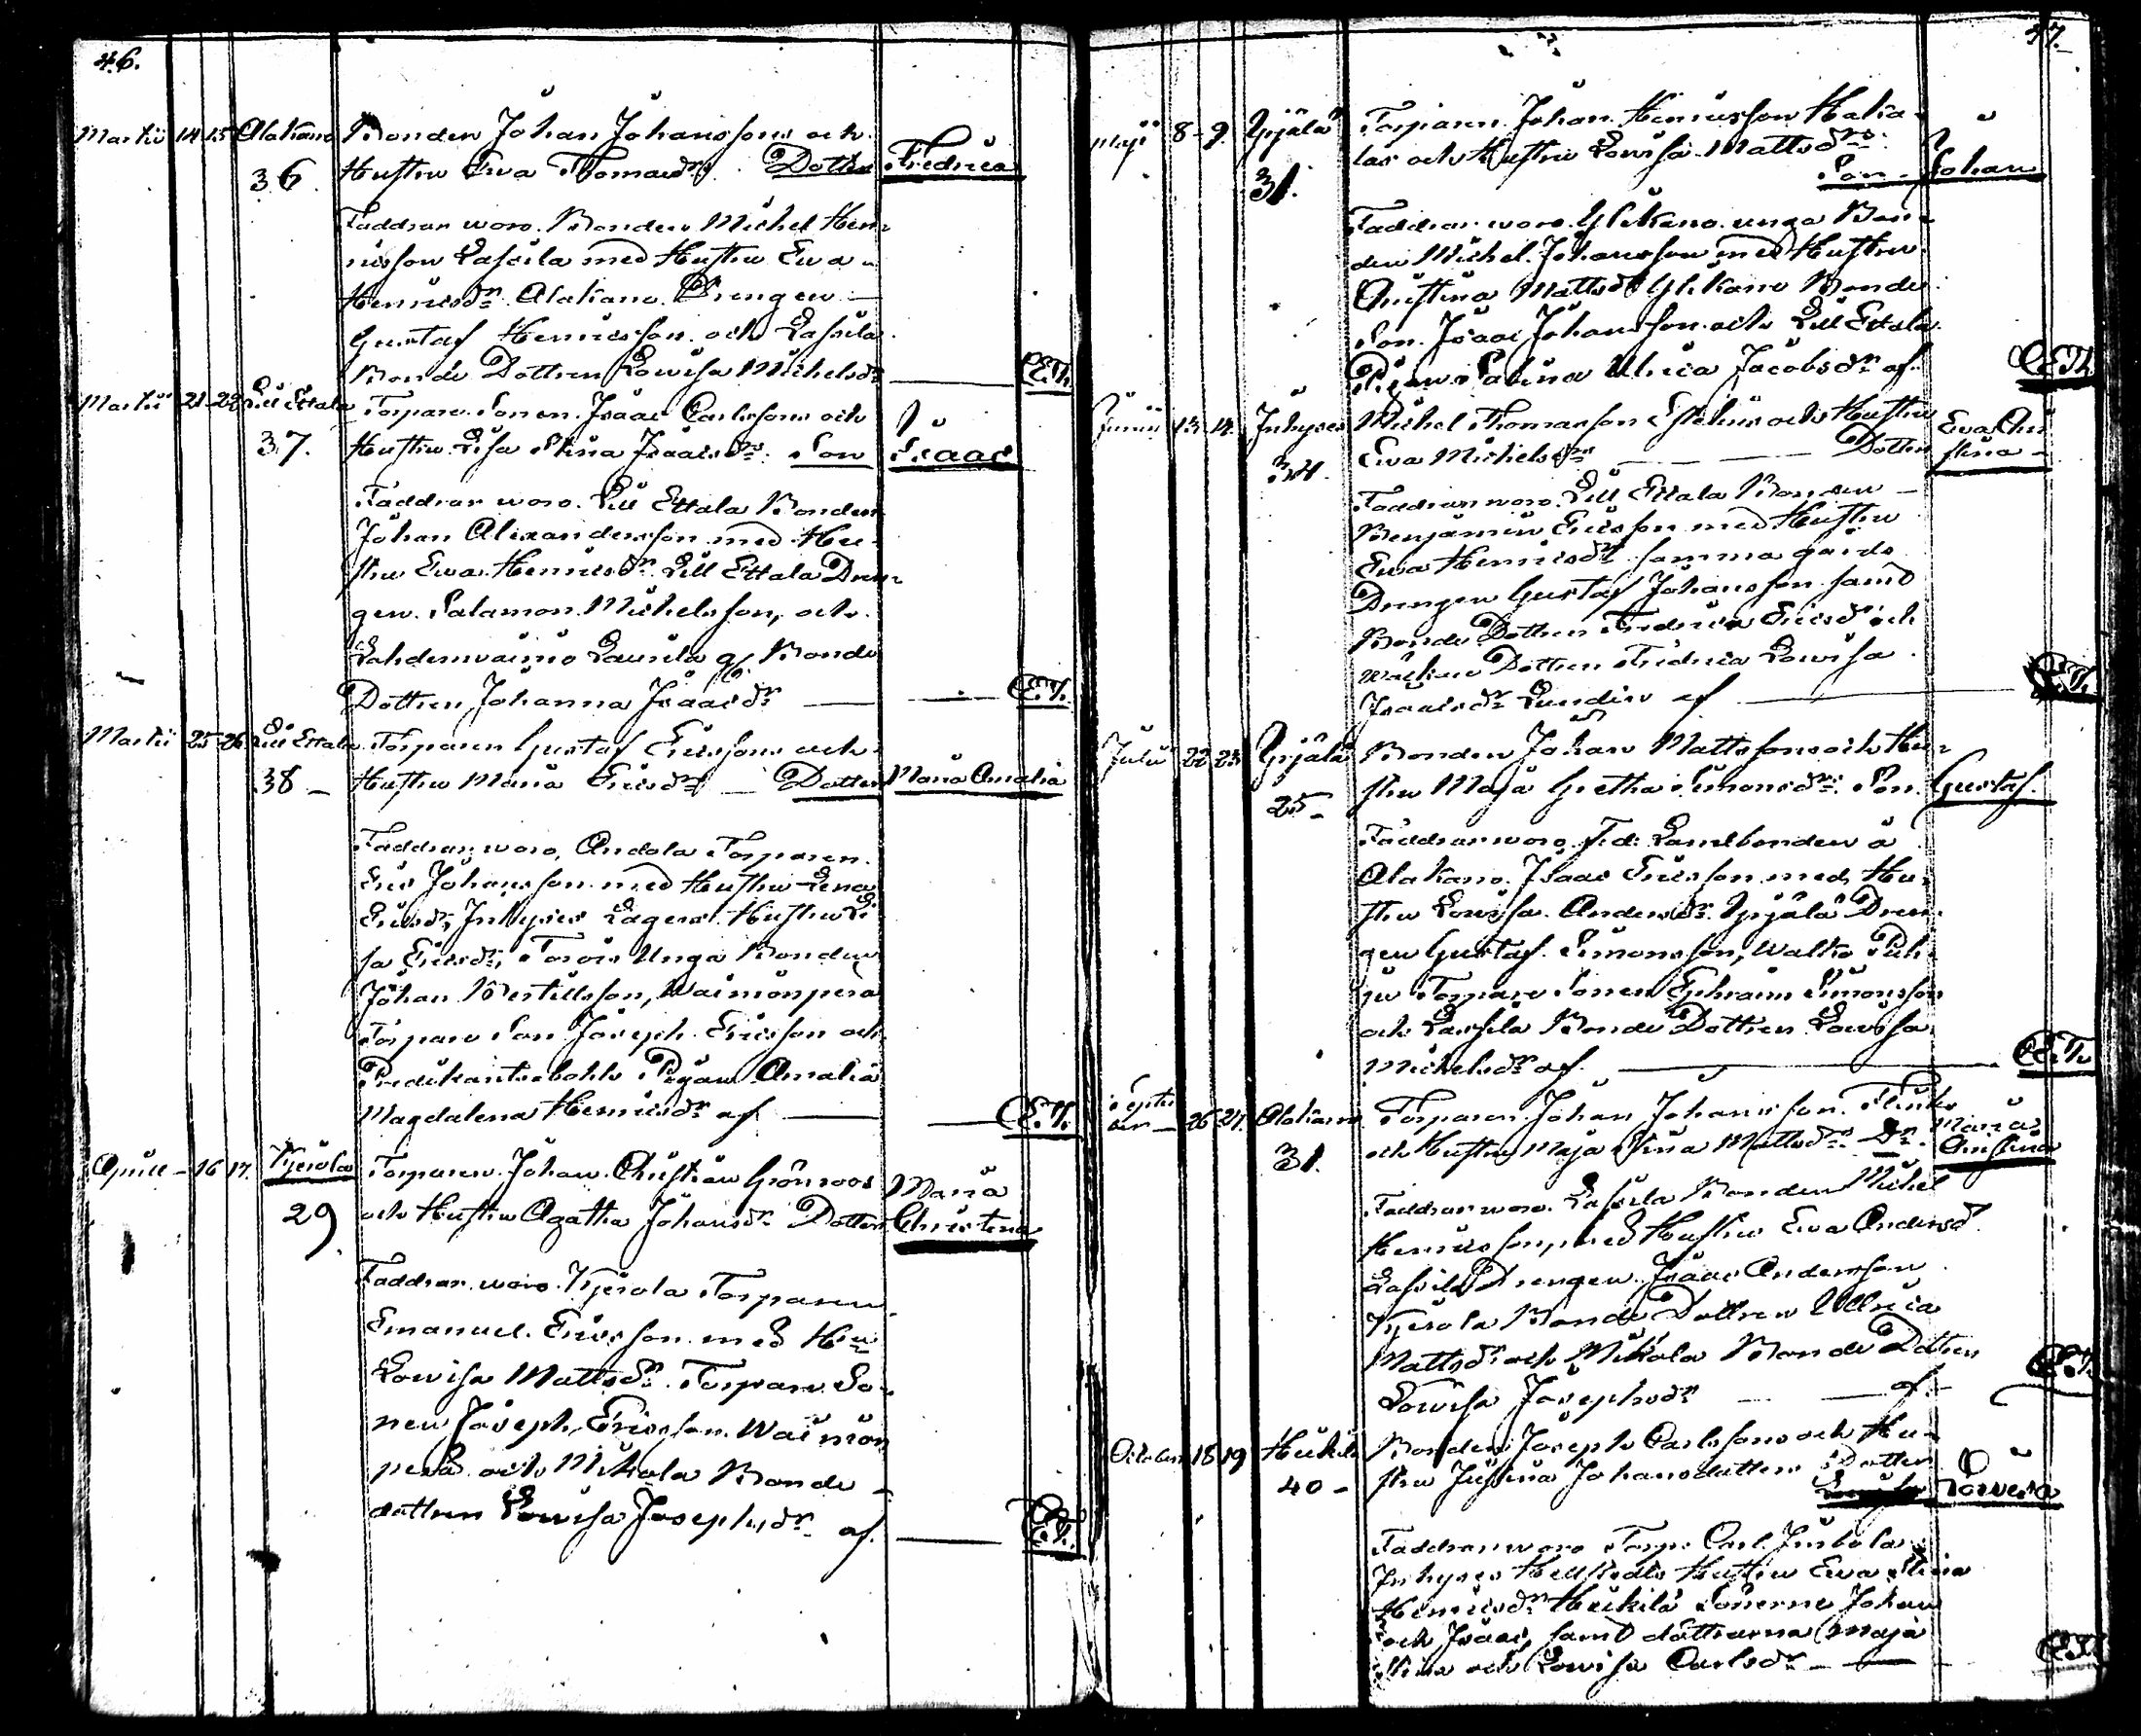 46.
Martii 14 15 Alakano Bonden Johan Johansson och
36 Hustru Eva Thomasdr. Dotter Fredrica
Faddrar woro. Bonden Michel Hen-
ricsson Lassila med Hustru Eva
Henricsdr. Alakano Drengen
Gustaf Henricsson och Lassila
Bonde Dottren Lowisa Michelsdr E.T.
Martii 21 22 Lill Ettala Torpare Sonen Isaac Carlsson och
37. Hustru Lisa Stina Isaacsdr. Son Isaac
Faddrar woro. Lill Ettala Bonden
Johan Alexandersson med Hu-
stru Eva Henricsdr Lill Ettala Dren-
gen Salamon Michelsson, och
Lahdenwainio Laurila Bonde
Dottren Johanna Isaacsdr E.T.
Martii 25 26 Lill Ettala Torparen Gustaf Ericsson och
38 Hustru Maria Ericsdr Dotter Maria Amalia
Faddrar woro, Andola Torparen
Eric Johansson med Hustru Lena
Ericsdr, Inhyses Lagers Hustru Li-
sa Ericsdr, Torois Unga Bonden
Johan Bertillsson, Waimonpera
Torpare Son Joseph Ericsson och
Predikantsbohls Pigan Amalia
Magdalena Henricsdr af E.T.
April 16 17. Kjerola Torparen Johan Christian Grönroos Maria
29 och Hustru Agatha Johansdr Dotter Christina
Faddrar woro Kjerola Torparen
Emanuel Ericsson med Hu
Lowisa Mattsdr. Torpare So-
nen Joseph Ericsson Waimon
perä och Mikola Bonde
dottren Lowisa Josephsdr af. E.T.
47.
Maji 8 9. Yrjälä Torparen Johan Henricsson Haka-
31. las och Hustru Lowisa Mattsdr.
Son Johan
Faddrar woro Ylikano unga Bon-
den Michel Johansson med Hustru
Christina Mattsdr Ylikano Bonde
Son Isaac Johansson och Lill Ettala
Pigan Sabina Ulrica Jacobsdr af E.T.
Junii 13. 14. Inhyses Michel Thomasson och Hustru Eva Chri
34. Eva Michelsdr Dotter stina
Faddrar woro Lill Ettala Bonden
Benjamin Ericsson med Hustru
Eva Henricsdr samma gårds
Drengen Gustaf Johansson samt
Bonde Dottren Fredrica Ericsdr och
Dottren Fredrica Lowisa
Isaacsdr Lundin af E.T.
Julii 22 23 Yrjälä Bonden Johan Mattsson och Hu-
25 stru Maja Gretha Simonsdr. Son. Gustaf.
Faddrar woro f.d. Landbonden å
Alakano Isaac Ericsson med Hu-
stru Lowisa Andersdr. Yrjälä Dren-
gen Gustaf Simonsson, Walko
Torpare Sonen Ephraim Simonsson
och Lassila Bonde Dottren Lowisa
Michelsdr af E.T.
Septem
ber 26 27. Alakano Torparen Johan Johansson Maria
31. och Hustru Maja Stina Mattsdr. Dr. Christina
Faddrar woro. Lassila Bonden Michel
Henricsson, med Hustru Eva Andersdr
Lassila Drengen Isaac Andersson
Kjerola Bonde Dottren Ullrica
Mattsdr och Mikola Bonde Dottren
Lowisa Josephsdr af E.T.
October 18 19 Heikilä Bonden Joseph Carlsson och Hu-
40 stru Justina Johansdotter Dotter
Lovisa
Faddrar woro Torp. Carl
Inhyses Hellstedts Hustru Eva Stina
Henricsdr Heikilä Sönerne Johan
och Isaac, samt döttrarna Maja
Stina och Lowisa Carlsdr E.T.